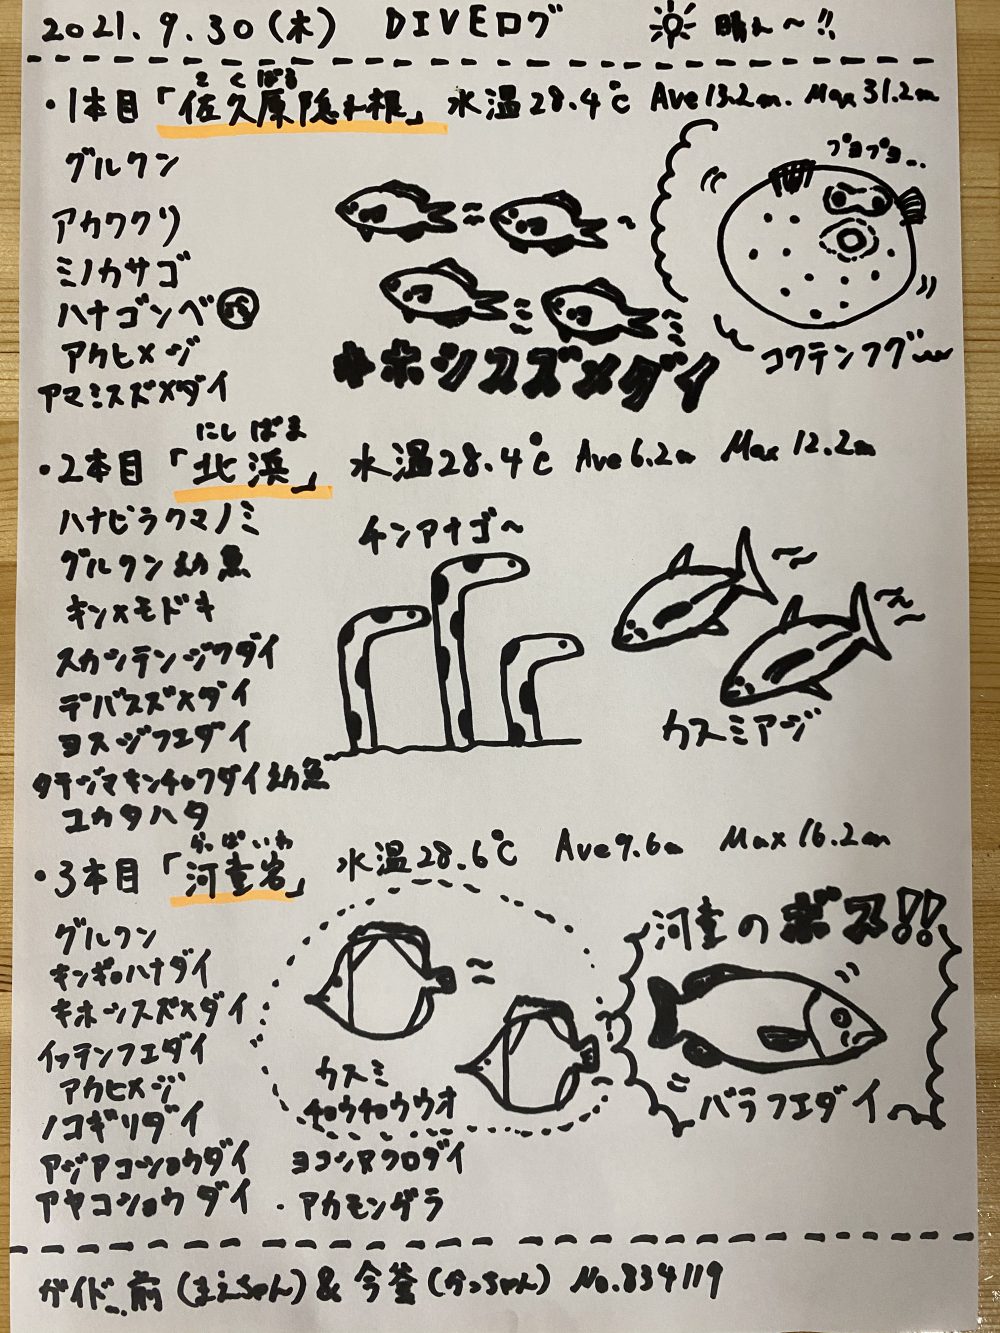 2021.9.30(木) DIVEログ 晴れ〜!!
さくばる
・1本目「佐久原隠れ根」 水温28.4℃ Ave13.2m. Max31.2m
グルクン
アカククリ
ミノカサゴ
ハナゴンベ
アカヒメジ
アマミスズメダイ
プヨプヨ..
コクテンフグ〜
キホシスズメダイ
にしばま
・2本目「北浜」 水温28.4℃ Ave6.2m Max12.2m
ハナビラクマノミ
グルクン幼魚
キンメモドキ
スカシテンジクダイ
デバスズメダイ
ヨスジフエダイ
タテジマキンチャクダイ幼魚
ユカタハタ
チンアナゴ〜
カスミアジ
かっぱいわ
・3本目「河童岩」 水温28.6℃ Ave9.6m Max16.2m
グルクン
キンギョハナダイ
キホシスズメダイ
イッテンフエダイ
アカヒメジ
ノコギリダイ
アジアコショウダイ
アヤコショウダイ
カスミ
チョウチョウウオ
ヨコシマクロダイ
・アカモンガラ
河童のボス!!
バラフエダイ
ガイド..前(まえちゃん)&今釜(かっちゃん) No.834119